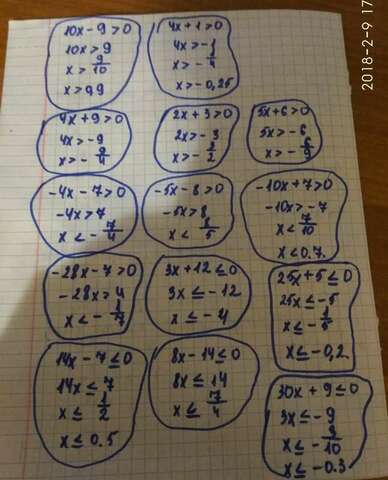 2018-2-9 17
10x - 9 > 0
10x > 9
x > 9/10
x > 0,9
4x + 1 > 0
4x > -1
x > - 1/4
x > -0,25
4x + 9 > 0
4x > -9
x > - 9/4
2x + 3 > 0
2x > -3
x > - 3/2
5x + 6 > 0
5x > -6
x > -
-4x - 7 > 0
-4x > 7
x < - 7/4
-5x - 8 > 0
-5x > 8
x < 8/5
-10x + 7 > 0
-10x > -7
x < 7/10
x < 0.7.
-28x - 7 > 0
-28x > 4
x < - 1/7
3x + 12 ≤ 0
3x ≤ -12
x ≤ -4
25x + 5 ≤ 0
25x ≤ -5
x ≤ - 1/5
x ≤ -0,2
14x - 7 ≤ 0
14x ≤ 7
x ≤ 1/2
x ≤ 0.5
8x - 14 ≤ 0
8x ≤ 14
x ≤ 7/4
30x + 9 ≤ 0
3x ≤ -9
x ≤ - 9/10
x ≤ -0.3